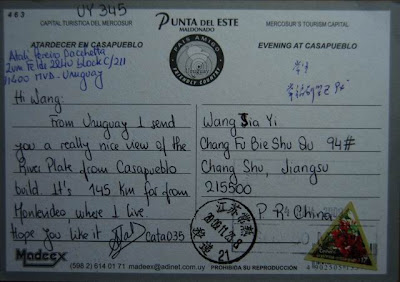 463
UY 345
CAPITAL TURISTICA DEL MERCOSUR
PUNTA DEL ESTE
MALDONADO
MERCOSUR'S TOURISM CAPITAL
ATARDECER EN CASAPUEBLO
EVENING AT CASAPUEBLO
PAIS AMIGO
FRIENDLY COUNTRY
block C/211
11400 MVD - Uruguay
Hi Wang:
From Uruguay I send
you a really nice view of the
River Plate from Casapueblo
It's 145 km far from
Montevideo, where I live.
Hope you like it
Cata035
Wang Jia Yi
Chang Fu Bie Shu Qu 94#
Chang Shu, Jiangsu
215500
P R China
江苏常熟
2009.11.23.8
21
Madeex
(598 2) 614 01 71 madeex@adinet.com.uy
PROHIBIDA SU REPRODUCCIÓN